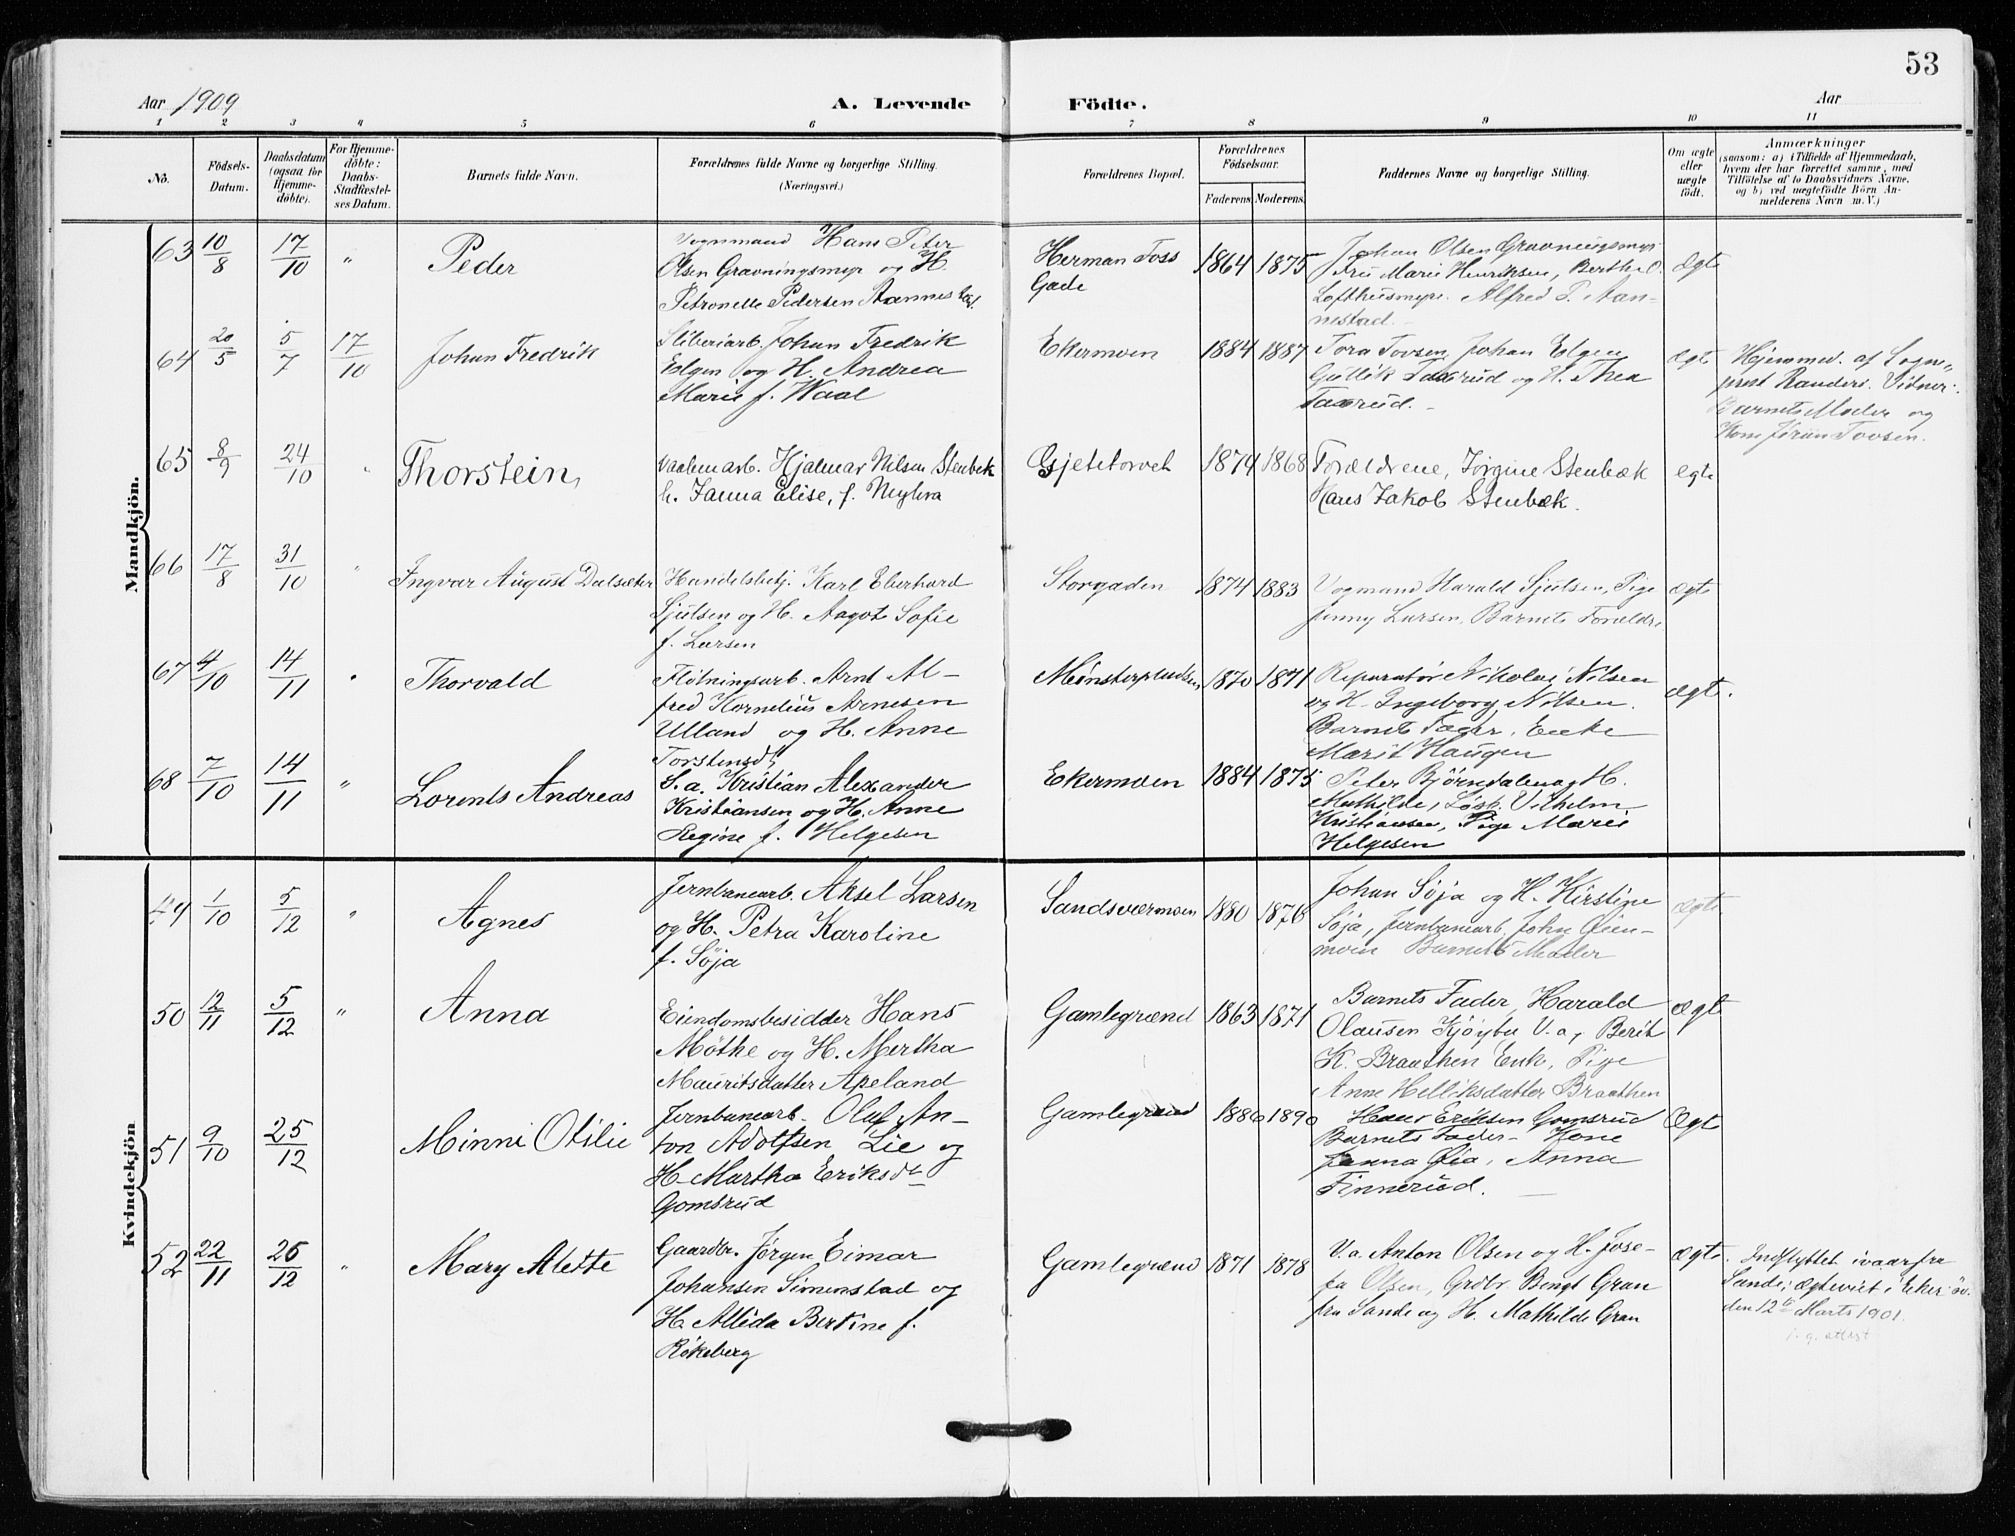 53
Aar 1909
A. Levende Födte.
Aar
1 2 3 4 5 6 7 8 9 10 11
No.
Födsels-Datum.
Daabsdatum (ogsaa for Hjemme-døbte).
For Hjemme-døbte: Daabs-Stadfæstel-ses Datum.
Barnets fulde Navn.
Forældrenes fulde Navne og borgerlige Stilling. (Næringsvei.)
Forældrenes Bopæl.
Forældrenes Födselsaar.
Faderens Moderens.
Faddernes Navne og borgerlige Stilling.
Om ægte eller uægte födt.
Anmærkninger
(saasom: a) i Tilfælde af Hjemmedaab,
hvem der har forrettet samme, med
Tilföielse af to Daabsvidners Navne,
og b) ved uægtefödte Börn An-
melderens Navn m. V.)
Mandkjön.
63 10/8 17/10 " Peder
Vognmand Hans Peter
Olsen Gravningsmyr og H.
Petronelle Pedersen Aannestad.
Herman Foss
Gade
1864 1875
Johan Olsen Gravningsmyr
Fru Marie Henriksen, Berthe O.
Lofthusmyr. Alfred P. Aan-
nestad.
Ægte
64 20/5 5/7 17/10 Johan Fredrik
Sliberiarb. Johan Fredrik
Elgen og H. Andrea
Marie f. Waal
Ekermoen 1884 1887
Tora Tovsen, Johan Elgen
Gullik Taxrud og H. Thea
Taxrud.
ægte
Hjemmed. af Sogne-
prest Randers. Vidner:
Barnets Moder og
Kone Jørun Tovsen.
65 8/9 24/10 " Thorstein,
Vaabenarb. Hjalmar Nilsen Stenbæk
h. Janna Elise, f. Myhra
Gjetetorvet 1874 1868
Forældrene, Jørgine Stenbæk
Hans Jakob Stenbæk.
egte
66 17/8 31/10 " Ingvar August Dalsæter
Handelsbetj. Karl Eberhard
Sjulsen og H. Aagot Sofie
f. Larsen
Storgaden 1874 1883
Vogmand Harald Sjulsen, Pige
Jenny Larsen, Barnets Forældre
ægte
67 4/10 14/11 " Thorvald
Fløtningsarb. Arnt Al-
fred Kornelius Arnesen
Ulland og H. Anne
Torstensdt.
Mønsterpladsen 1870 1871
Reparatør Nikolai Nilsen
og H. Ingeborg Nilsen.
Barnets Fader, Enke
Marit Haugen
ægte.
68 7/10 14/11 " Lorents Andreas
S.a. Kristian Alexander
Kristiansen og H. Anne
Regine f. Helgesen
Ekermoen 1884 1875
Peter Bjørndalen og H.
Mathilde, Løsk. Vilhelm
Kristiansen, Pige Marie
Helgesen
Kvindekjön
49 1/10 5/12 " Agnes
Jernbanearb. Aksel Larsen
og H. Petra Karoline
f. Søja
Sandsværmoen 1880 1876
Johan Søja og H. Kirstine
Søja, Jernbanearb. John Øien-
moen Barnets Moder
ægte
50 12/11 5/12 " Anna
Eiendomsbesidder Hans
Møthe og H. Mertha
Mauritsdatter Apeland
Gamlegrænd 1863 1871
Barnets Fader, Harald
Olausen Kjøybu V.a, Berit
K. Braathen Enke, Pige
Anne Helliksdatter Braathen
Ægte
51 9/10 25/12 Minni Otilie
Jernbanearb. Oluf An-
ton Adolfsen Lie og
H. Martha Eriksdt
Gomsrud
Gamlegrænd 1886 1890
Hans Eriksen Gomsrud
Barnets Fader - Kone
Janna Øia, Anna
Finnerud.
Ægte
52 22/11 26/12 " Mary Alette
Gaardbr. Jørgen Eimar
Johansen Simenstad og
H. Allida Bertine f.
Røkeberg
Gamlegrænd 1871 1878
V.a. Anton Olsen og H. Jose-
fa Olsen, Grdbr. Bengt Gran
fra Sande og H. Mathilde Gran
Ægte.
Indflyttet ivaar fra
Sande; ægteviet i Eker
den 12te Marts 1901.